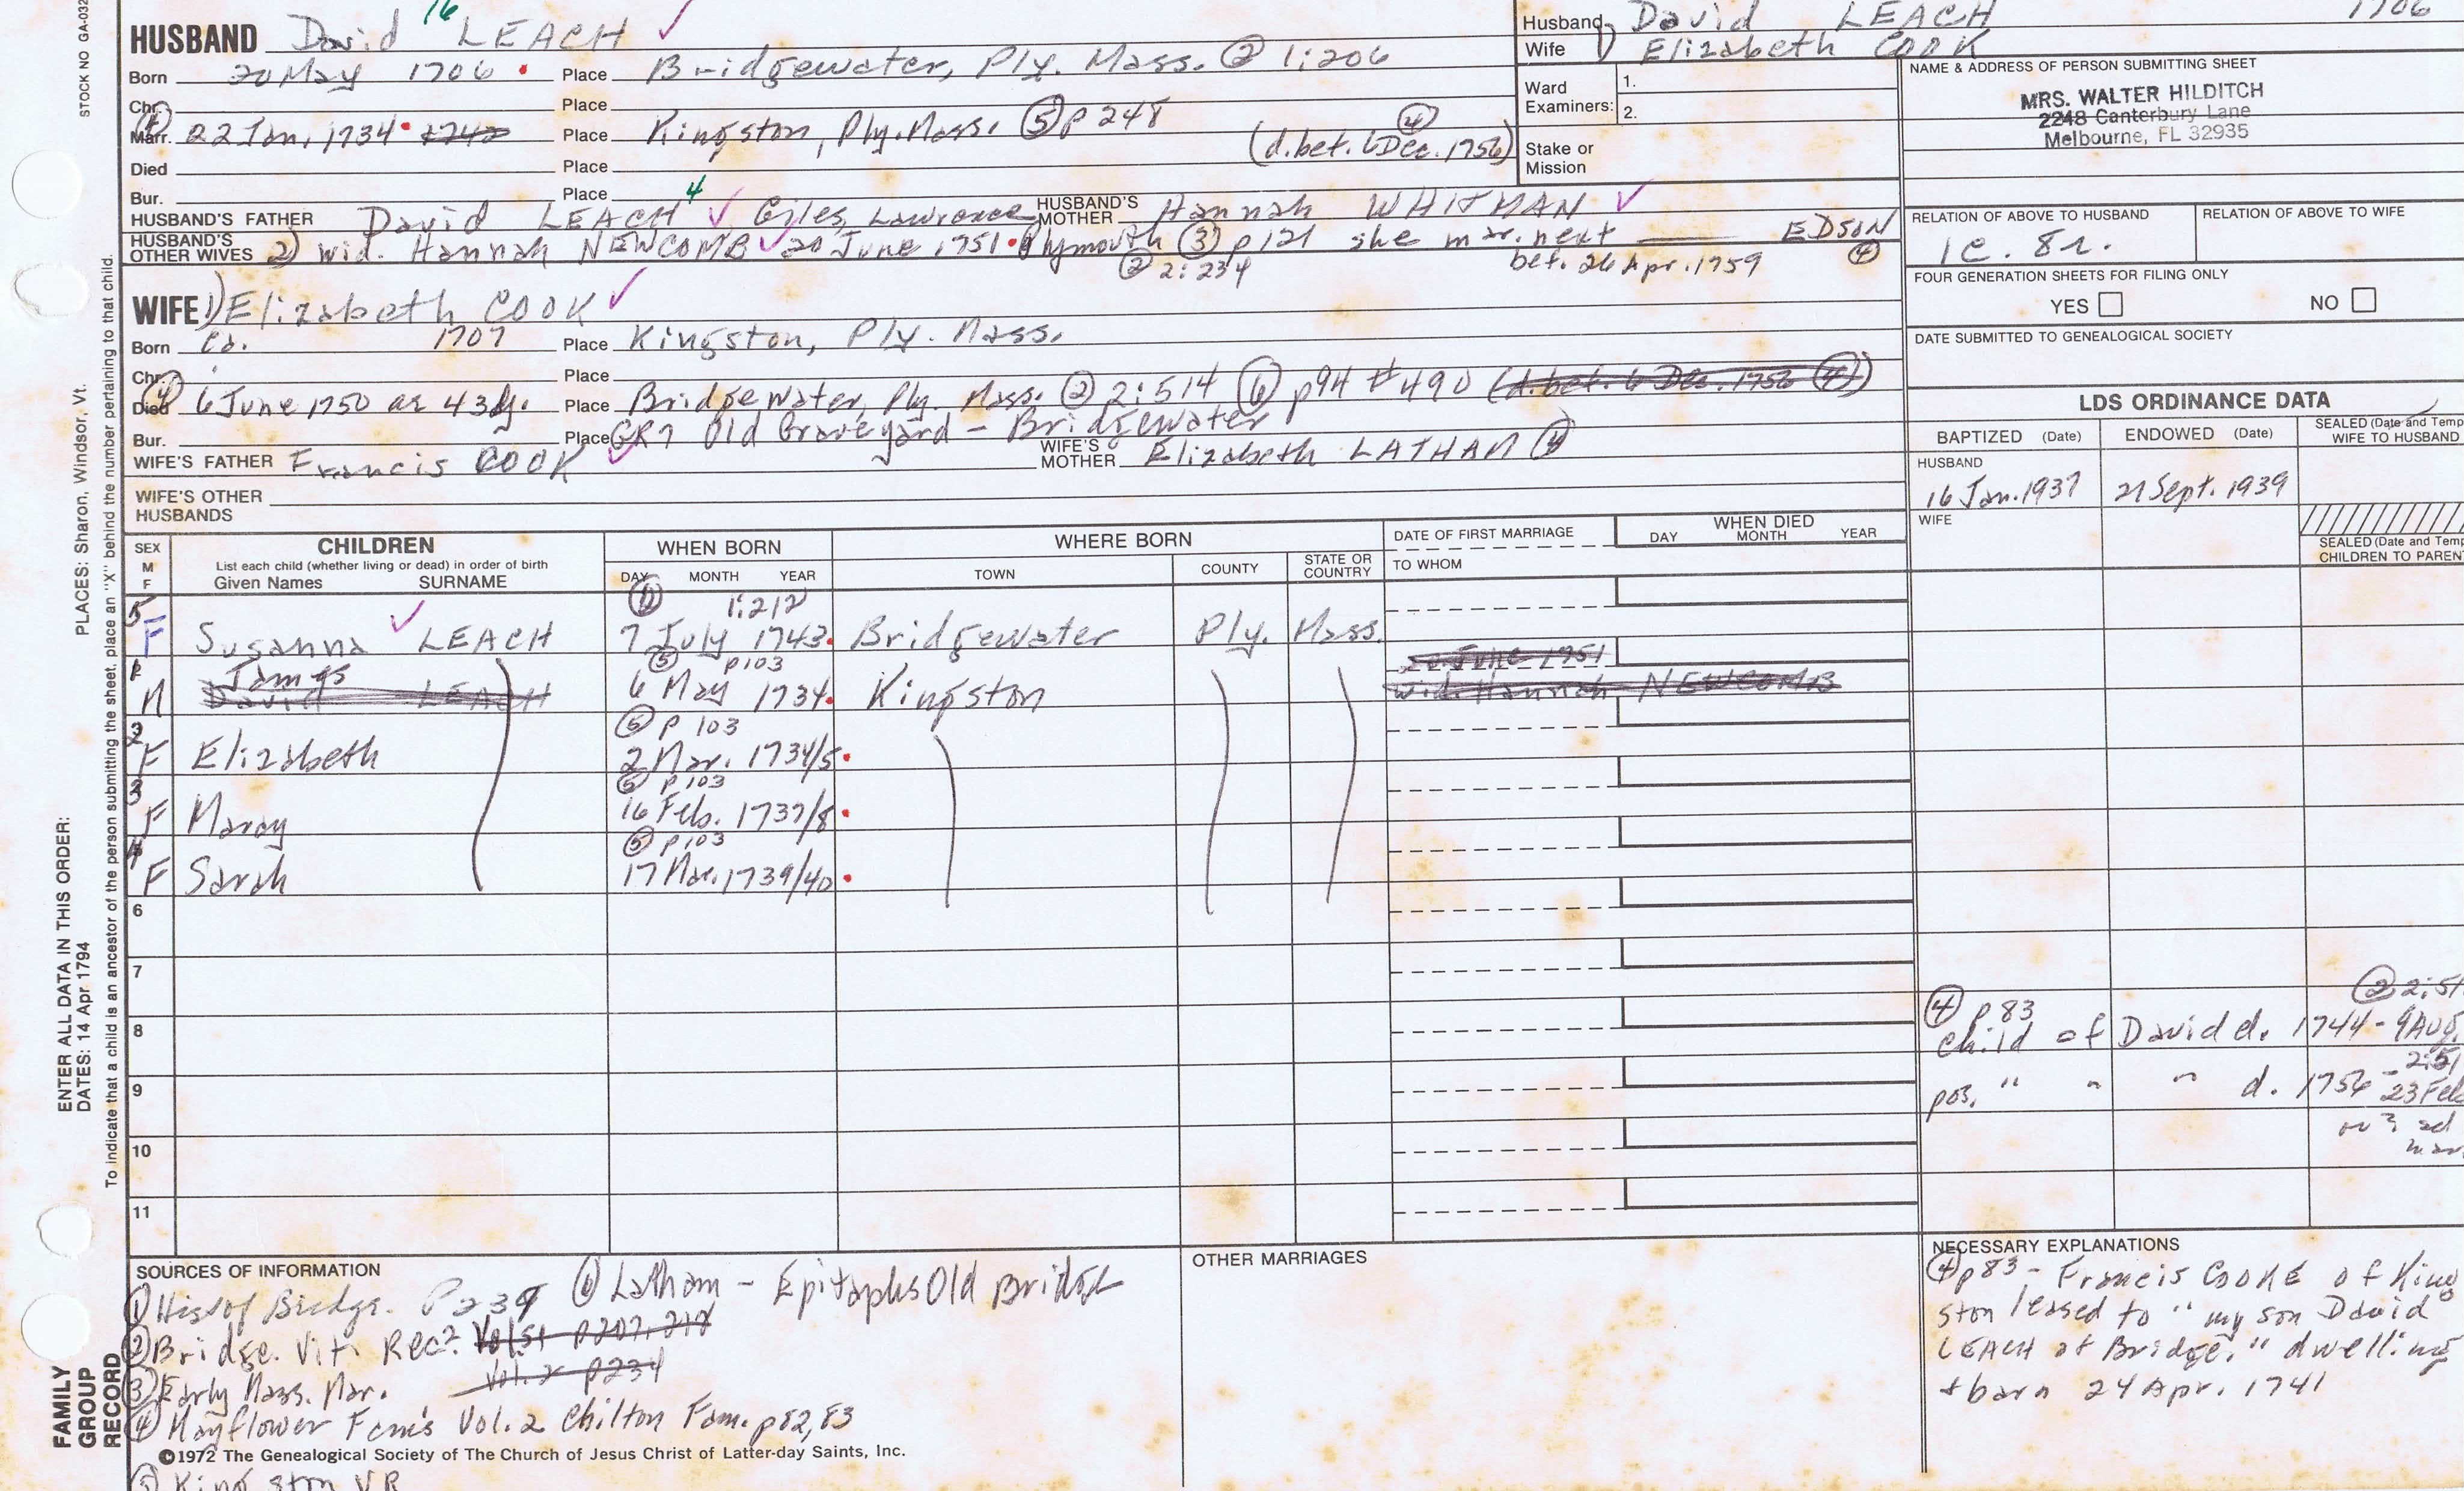 STOCK NO GA-032
16
HUSBAND David LEACH ✓
Born 20 May 1706 • Place Bridgewater, Ply. Mass. ② 1:206
Chr. Place
④
Marr. 22 Jan, 1734 • 1742 Place Kingston, Ply. Mass. ⑤ p 248
④
(d. bet. 6 Dec. 1756)
Died Place
Bur. Place
4
HUSBAND'S FATHER David LEACH ✓, Giles, Lawrence HUSBAND'S MOTHER Hannah WHITMAN ✓
HUSBAND'S OTHER WIVES 2) wid. Hannah NEWCOMB ✓ 20 June 1751 • Plymouth ③ p 121 she mar. next EDSON
② 2:234 bef. 26 Apr. 1759 ④
WIFE 1) Elizabeth COOK ✓
Born Ca. 1707 Place Kingston, Ply. Mass.
Chr. Place
④
Died 6 June 1750 ae 43 y. Place Bridgewater, Ply. Mass. ② 2:514 ⑥ p94 #490 (d. bet. 6 Dec. 1756 ④)
Bur. Place GR7 Old Graveyard - Bridgewater
WIFE'S FATHER Francis COOK ✓ WIFE'S MOTHER Elizabeth LATHAM ④
WIFE'S OTHER HUSBANDS
Husband David LEACH 1706
Wife 1) Elizabeth COOK
Ward Examiners: 1.
2.
Stake or Mission
NAME & ADDRESS OF PERSON SUBMITTING SHEET
MRS. WALTER HILDITCH
2248 Canterbury Lane
Melbourne, FL 32935
RELATION OF ABOVE TO HUSBAND RELATION OF ABOVE TO WIFE
1c. 8r.
FOUR GENERATION SHEETS FOR FILING ONLY
YES NO
DATE SUBMITTED TO GENEALOGICAL SOCIETY
LDS ORDINANCE DATA
BAPTIZED (Date) ENDOWED (Date) SEALED (Date and Temp
WIFE TO HUSBAND
HUSBAND
16 Jan. 1937 21 Sept. 1939
WIFE
SEALED (Date and Temp
CHILDREN TO PAREN
SEX M F
CHILDREN
List each child (whether living or dead) in order of birth
Given Names SURNAME
WHEN BORN
DAY MONTH YEAR
WHERE BORN
TOWN COUNTY STATE OR COUNTRY
DATE OF FIRST MARRIAGE
TO WHOM
WHEN DIED
DAY MONTH YEAR
1:212
5 F Susanna ✓ LEACH 7 July 1743. Bridgewater Ply. Mass.
⑤ p103 20 June 1751
1 M James David LEACH 6 May 1734. Kingston wid. Hannah NEWCOMB
⑤ p 103
2 F Elizabeth 2 Mar. 1734/5 •
⑤ p103
3 F Marcy 16 Feb. 1737/8 •
⑤ p103
4 F Sarah 17 Mar. 1739/40 •
6
7
8
9
10
11
② 2:51
④ p 83
child of David d. 1744 - 9 Aug.
2:51
pos. " " " d. 1756 - 23 Feb
or 2nd
mar
SOURCES OF INFORMATION
① Hist of Bridge. P 239 ⑥ Latham - Epitaphs Old Bridge
② Bridge. Vit. Rec. Vol.
Vol. 2 p234
③ Early Mass. Mar.
④ Mayflower Fam's Vol. 2 Chilton Fam. p82,83
©1972 The Genealogical Society of The Church of Jesus Christ of Latter-day Saints, Inc.
⑤ Kingston VR
OTHER MARRIAGES
NECESSARY EXPLANATIONS
④ p 83 - Francis COOKE of King
ston leased to "my son David
LEACH of Bridge." dwelling
+ barn 24 Apr. 1741
ENTER ALL DATA IN THIS ORDER:
DATES: 14 Apr 1794
PLACES: Sharon, Windsor, Vt.
To indicate that a child is an ancestor of the person submitting the sheet, place an "X" behind the number pertaining to that child.
FAMILY GROUP RECORD